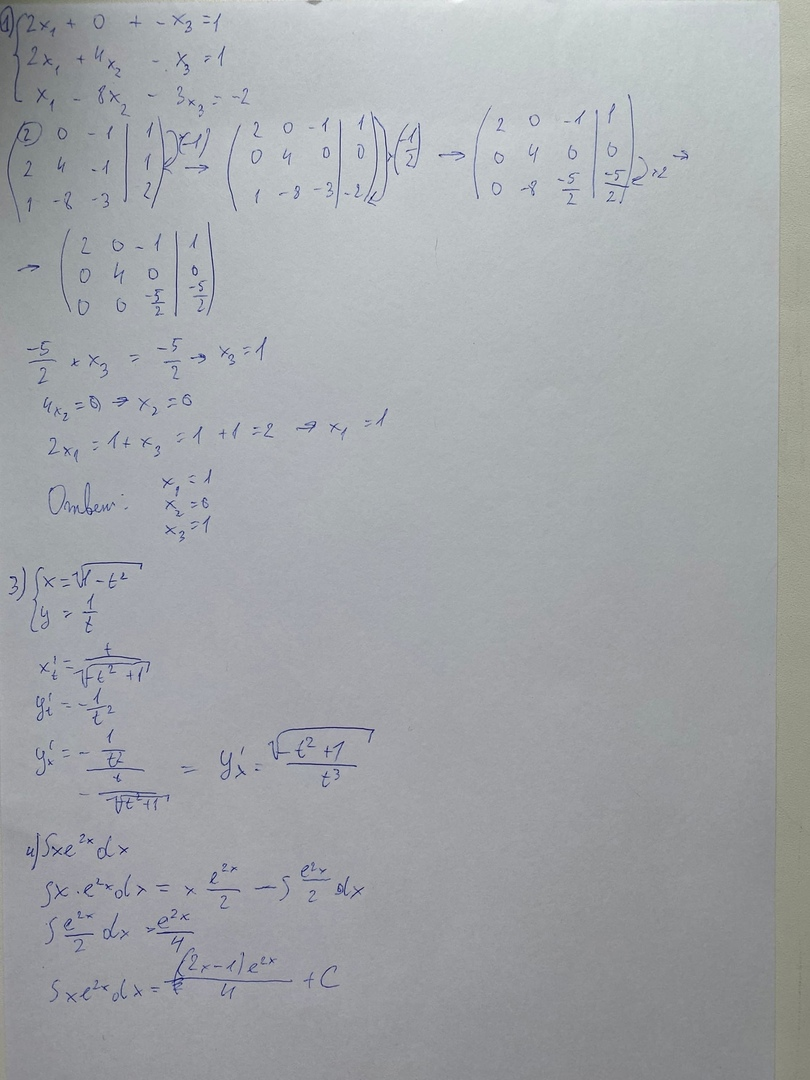 1) { 2x₁ + 0 + - x₃ = 1
2x₁ + 4x₂ - x₃ = 1
x₁ - 8x₂ - 3x₃ = -2
( 2 0 -1 | 1 ; 2 4 -1 | 1 ; 1 -8 -3 | 2 ) ×(-1) → ( 2 0 -1 | 1 ; 0 4 0 | 0 ; 1 -8 -3 | -2 ) ×(-1/2) → ( 2 0 -1 | 1 ; 0 4 0 | 0 ; 0 -8 -5/2 | -5/2 ) ×2 →
→ ( 2 0 -1 | 1 ; 0 4 0 | 0 ; 0 0 -5/2 | -5/2 )
-5/2 × x₃ = -5/2 → x₃ = 1
4x₂ = 0 → x₂ = 0
2x₁ = 1 + x₃ = 1 + 1 = 2 → x₁ = 1
Ответ: x₁ = 1
x₂ = 0
x₃ = 1
3) { x = √(1 - t²)
y = 1/t
x't = t/√(t² + 1)
y't = -1/t²
y'x = - (1/t²)/(- t/√(t² + 1)) = y'x = √(-t² + 1)/t³
4) ∫xe²ˣdx
∫x · e²ˣdx = x e²ˣ/2 - ∫ e²ˣ/2 dx
∫ e²ˣ/2 dx = e²ˣ/4
∫xe²ˣdx = (2x - 1)e²ˣ/4 + C